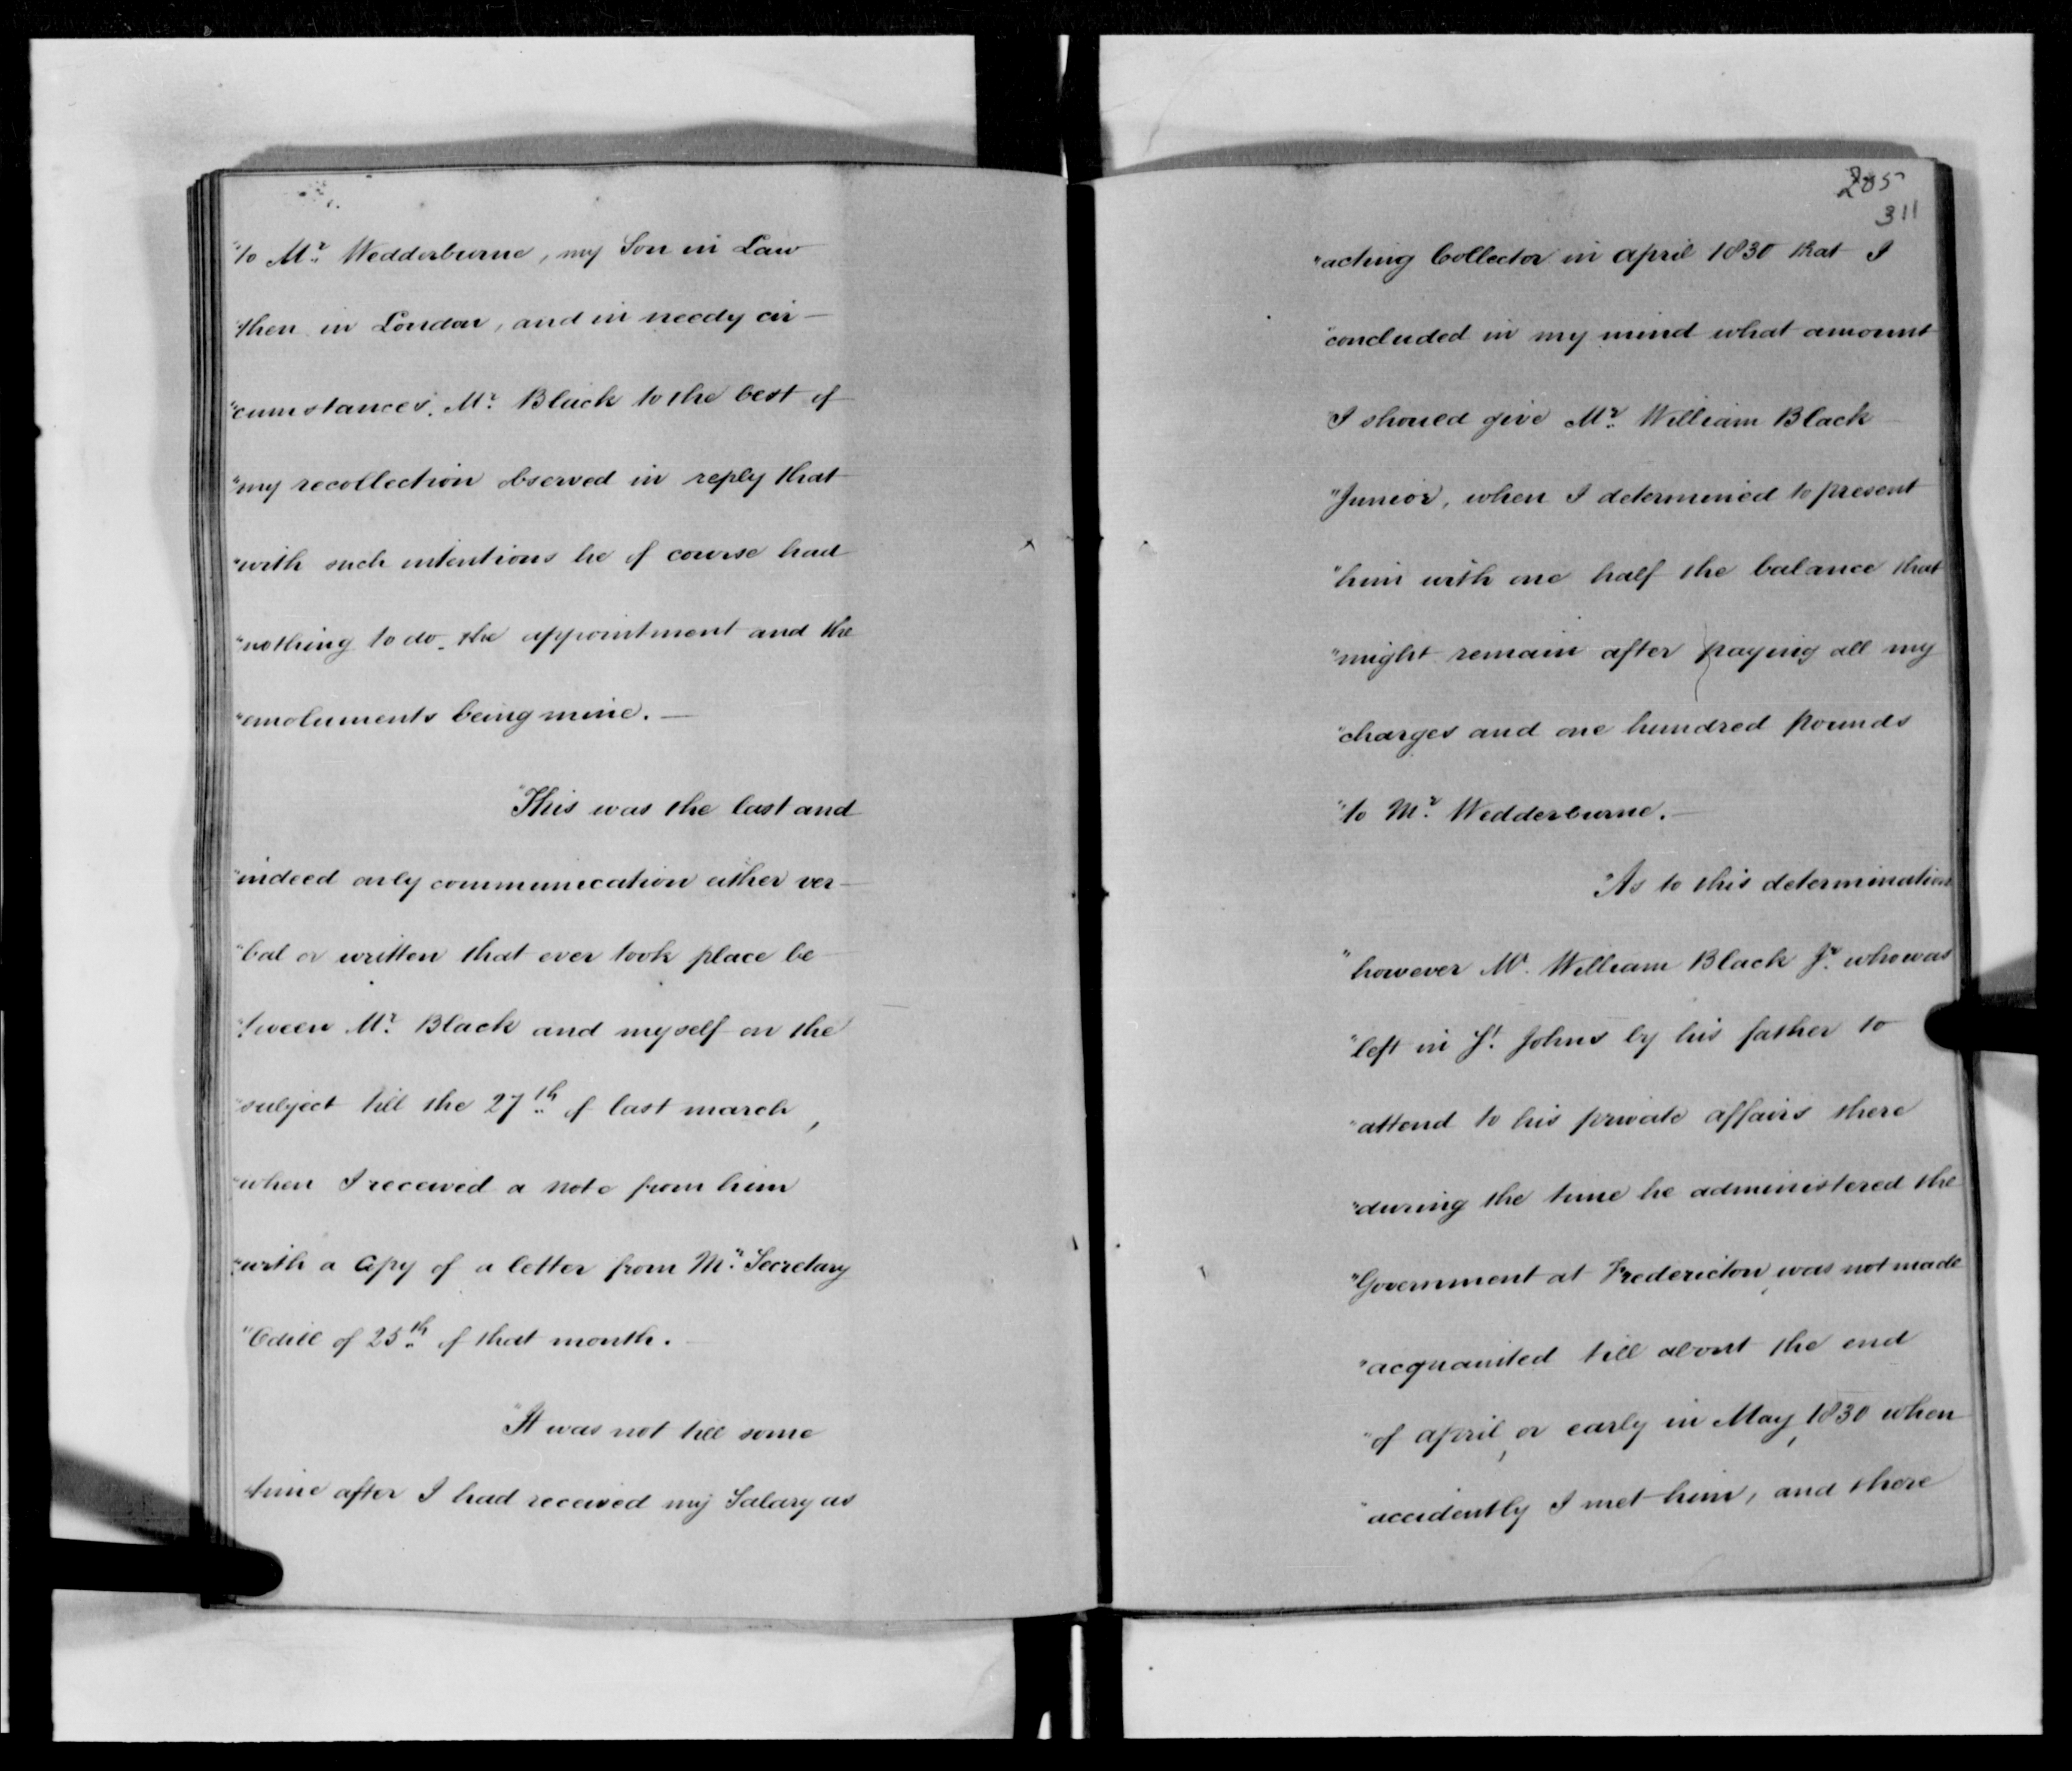 "to Mr. Wedderburne, my Son in Law
"then in London, and in needy cir-
"cumstances. Mr. Black to the best of
"my recollection observed in reply that
"with such intentions he of course had
"nothing to do. the appointment and the
"emoluments being mine. —
"This was the last and
"indeed only communication either ver-
"bal or written that ever took place be
"tween Mr. Black and myself on the
"subject till the 27th of last march,
"when I received a note from him
"with a Copy of a letter from Mr. Secretary
"Odill of 25th of that month. —
"It was not till some
"time after I had received my Salary as
285
311
"acting Collector in april 1830 that I
"concluded in my mind what amount
"I should give Mr. William Black
"Junior, when I determined to present
"him with one half the balance that
"might remain after paying all my
"charges and one hundred pounds
"to Mr. Wedderburne. —
"As to this determination
"however Mr. William Black Jr. who was
"left in St. Johns by his father to
"attend to his private affairs there
"during the time he administered the
"Government at Fredericton, was not made
"acquainted till about the end
"of april, or early in May, 1830 when
"accidently I met him, and there